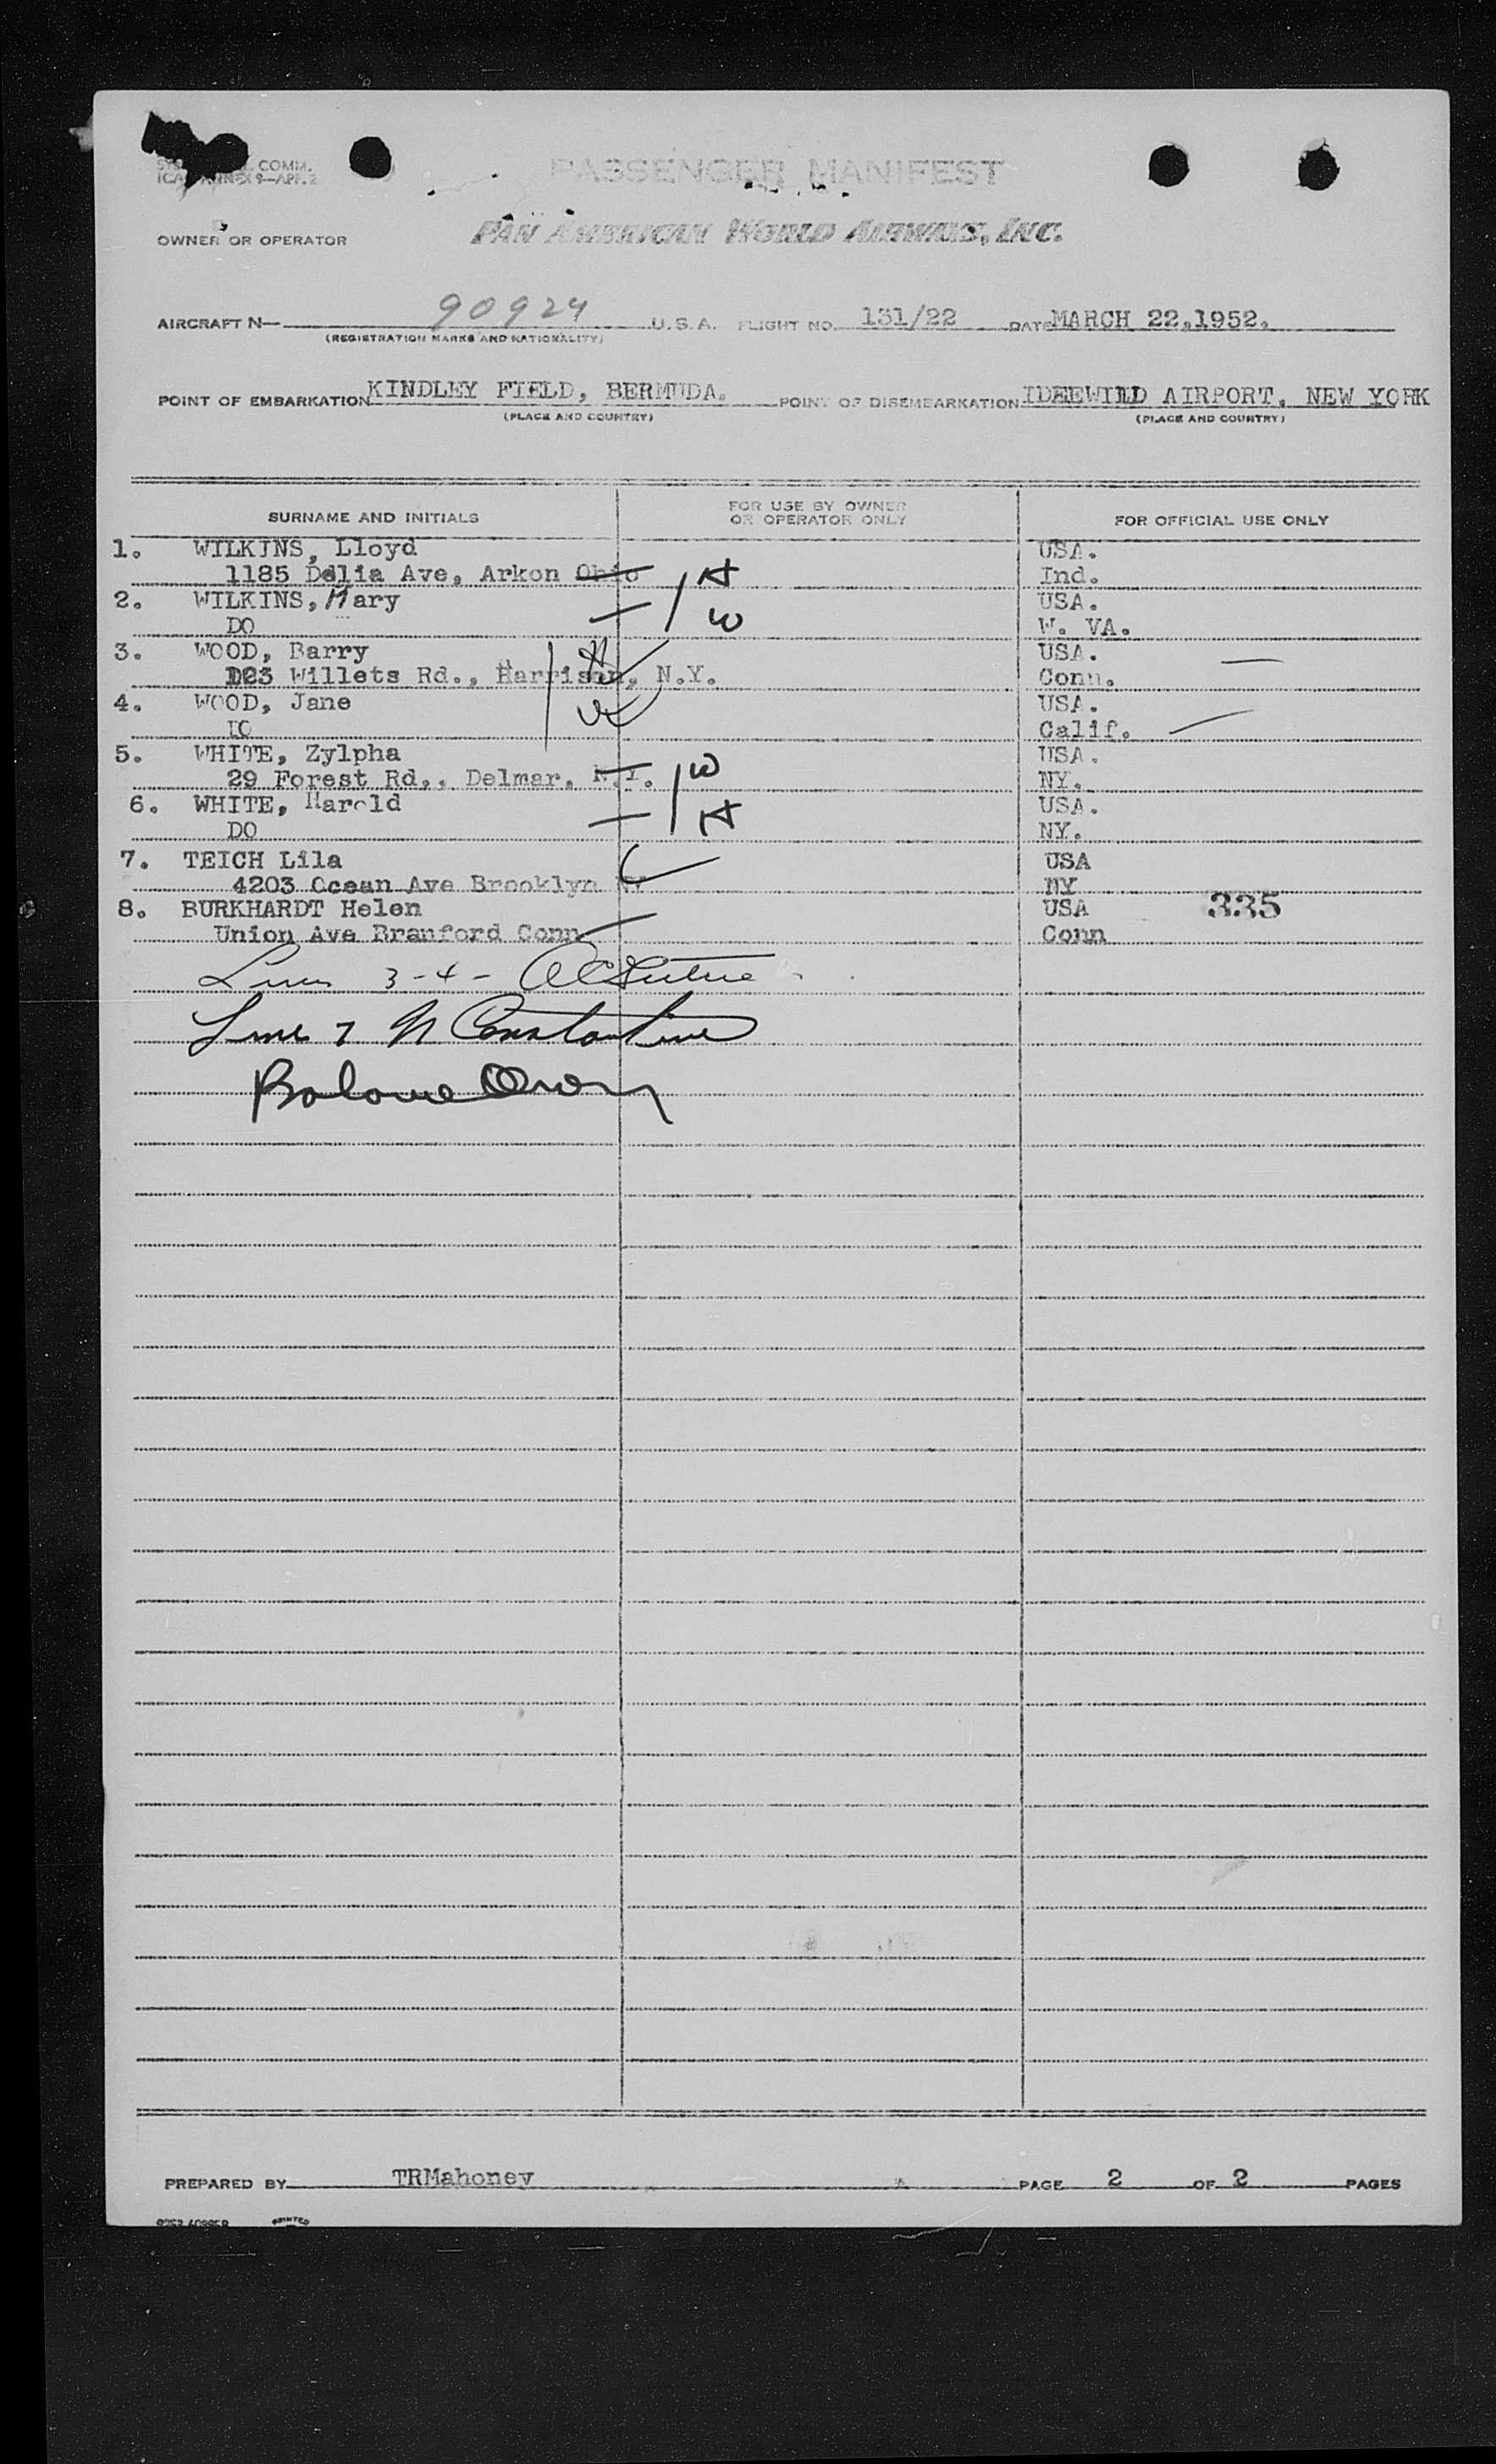 COMM.
PASSENGER MANIFEST
OWNER OR OPERATOR PAN AMERICAN WORLD AIRWAYS, INC.
AIRCRAFT N— 90924 U.S.A. FLIGHT NO. 131/22 DATE MARCH 22,1952.
(REGISTRATION MARKS AND NATIONALITY)
POINT OF EMBARKATION KINDLEY FIELD, BERMUDA. POINT OF DISEMBARKATION IDEEWILD AIRPORT, NEW YORK
(PLACE AND COUNTRY) (PLACE AND COUNTRY)
SURNAME AND INITIALS FOR USE BY OWNER OR OPERATOR ONLY FOR OFFICIAL USE ONLY
1. WILKINS, Lloyd USA.
1185 Delia Ave, Arkon Ohio H Ind.
2. WILKINS, Mary USA.
DO W W. VA.
3. WOOD, Barry H USA.
Willets Rd., Harrison, N.Y. Conn.
4. WOOD, Jane W USA.
DO Calif.
5. WHITE, Zylpha W USA.
29 Forest Rd,, Delmar, N.Y. NY.
6. WHITE, Harold H USA.
DO NY.
7. TEICH Lila USA
4203 Ocean Ave Brooklyn NY NY
8. BURKHARDT Helen USA 335
Union Ave Branford Conn Conn
Lines 3-4-
Line 7 N Constantine
Balance
PREPARED BY TRMahoney PAGE 2 OF 2 PAGES
PRINTED